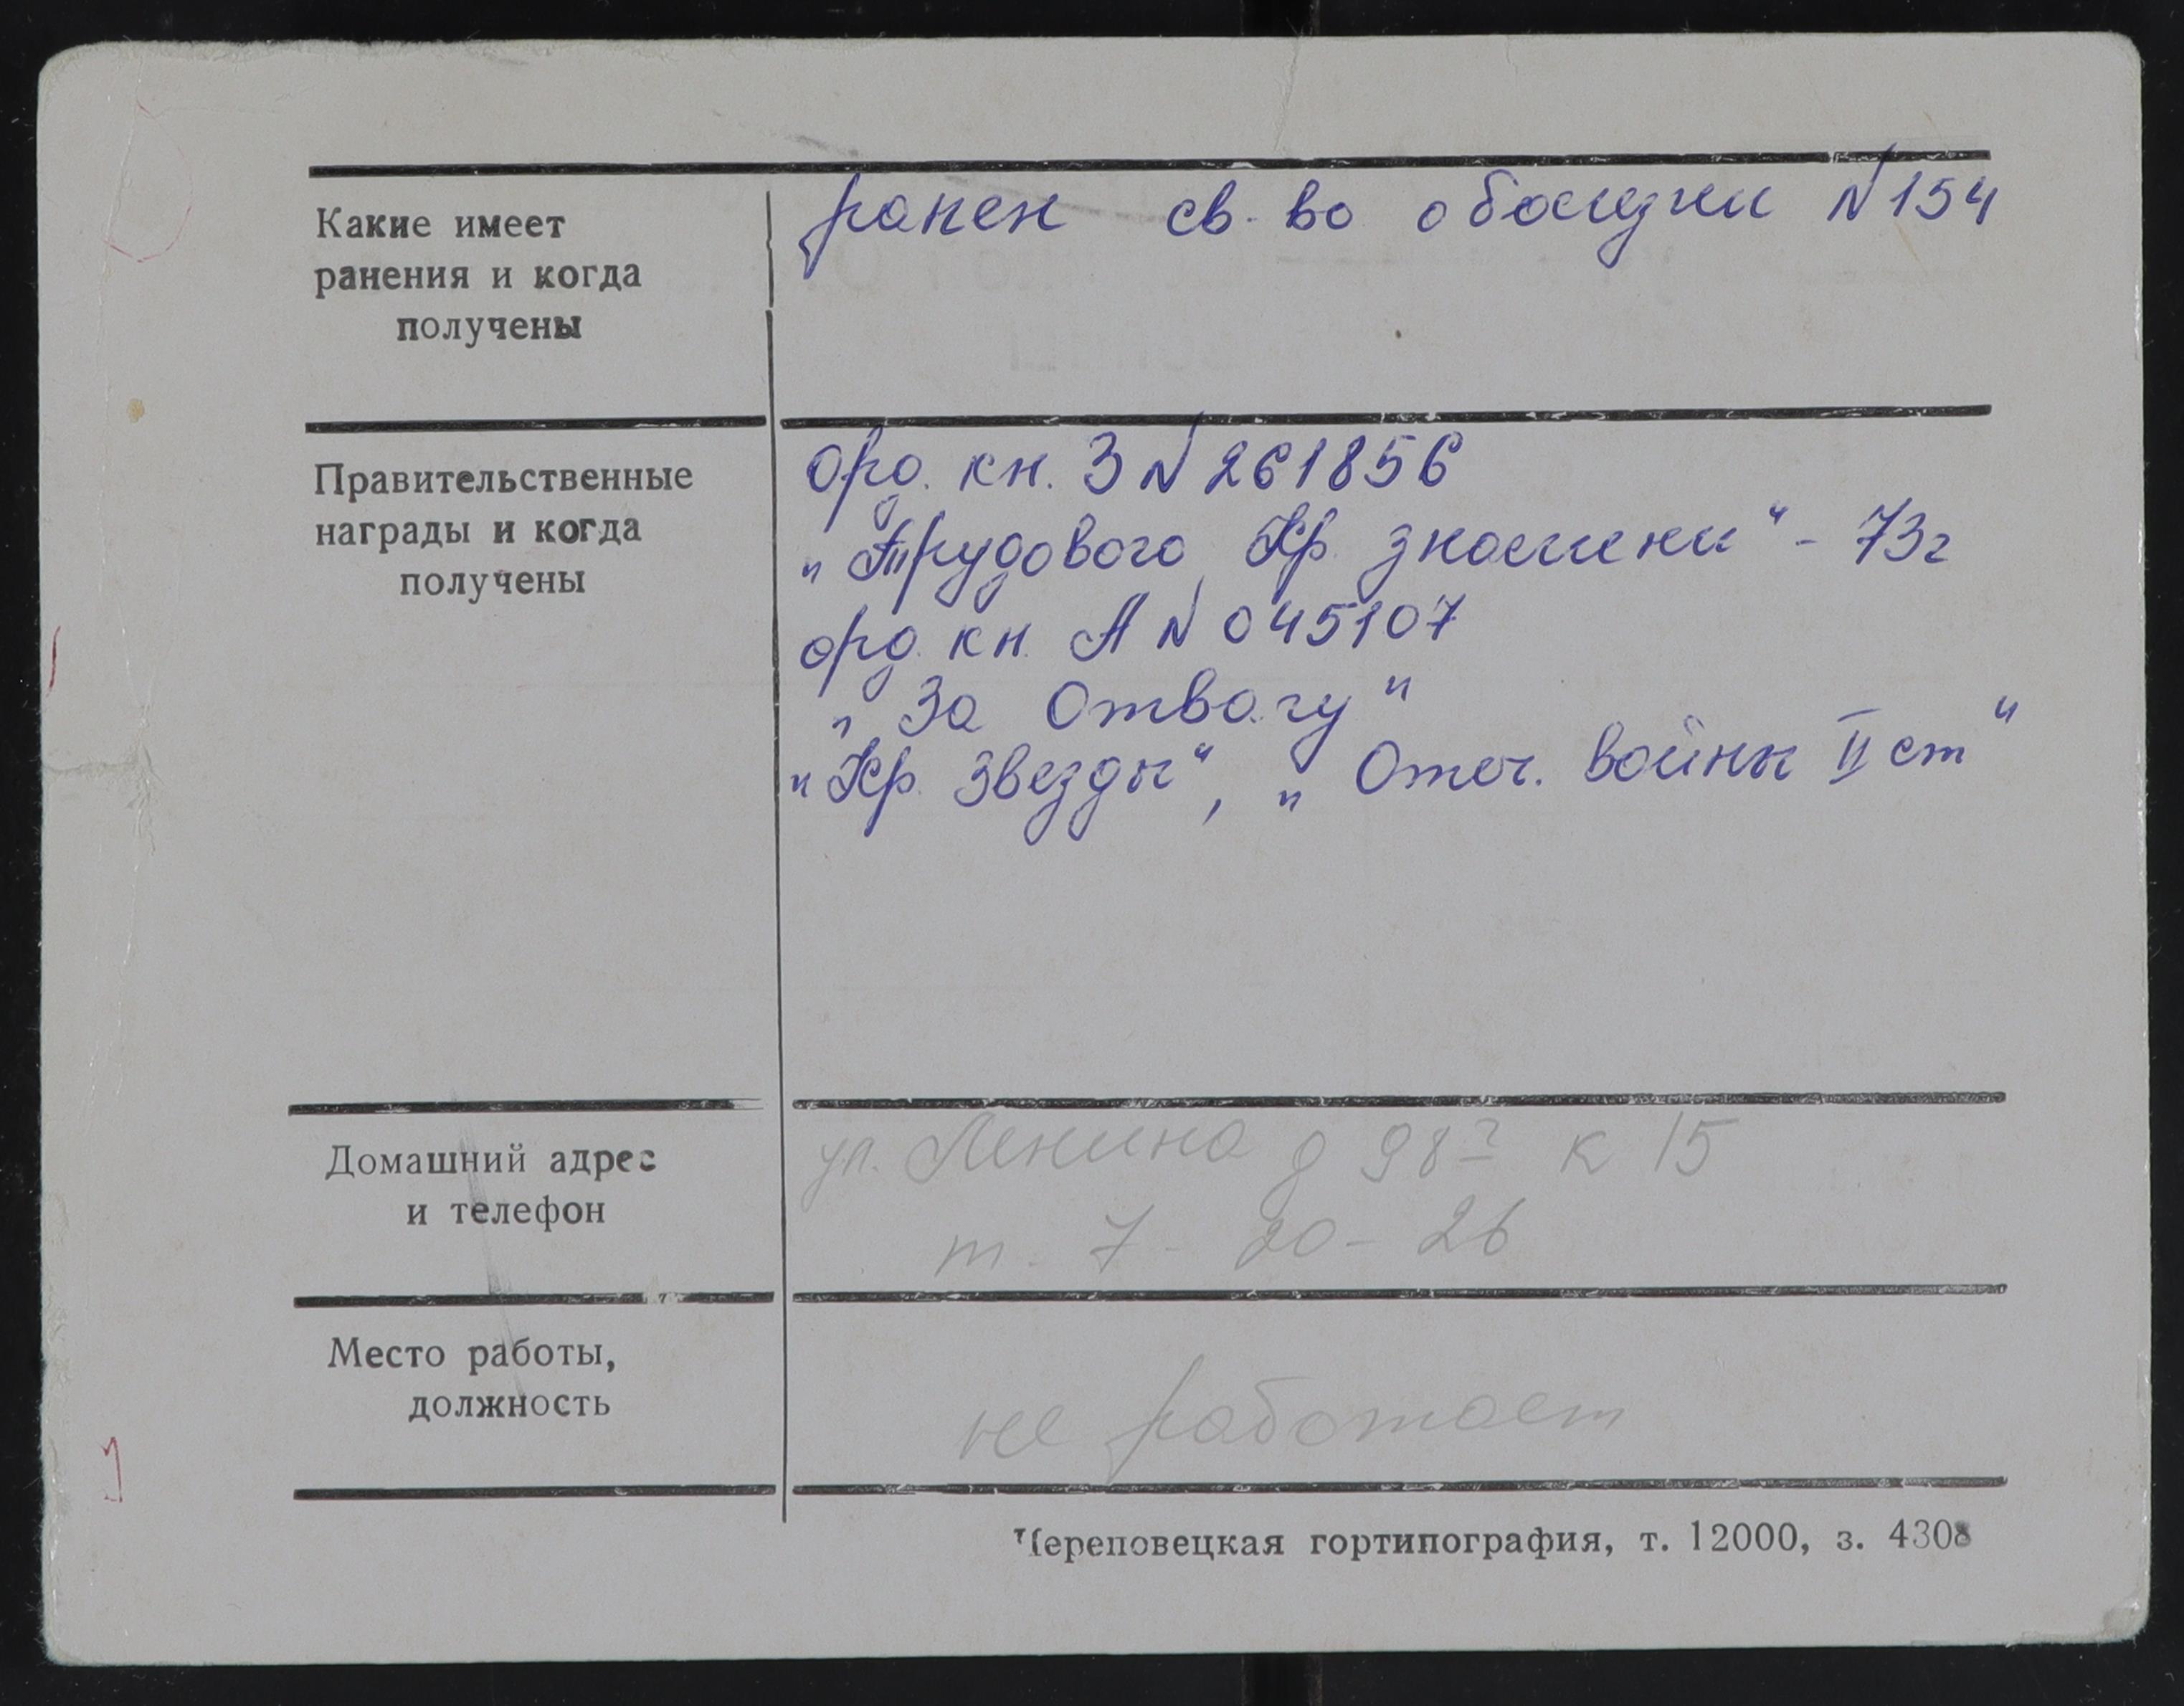 Какие имеет
ранения и когда
получены
ранен св-во о болезни N 154
Правительственные
награды и когда
получены
Орд. кн. З N 261856
„Трудового Кр. знамени“ - 73г
орд. кн. А N 045107
„За Отвагу“
„Кр. Звезды“, „Отеч. войны II ст“
Домашний адрес
и телефон
ул. Ленина д 98 к 15
т. 7-20-26
Место работы,
должность
не работает
Череповецкая гортипография, т. 12000, з. 4308